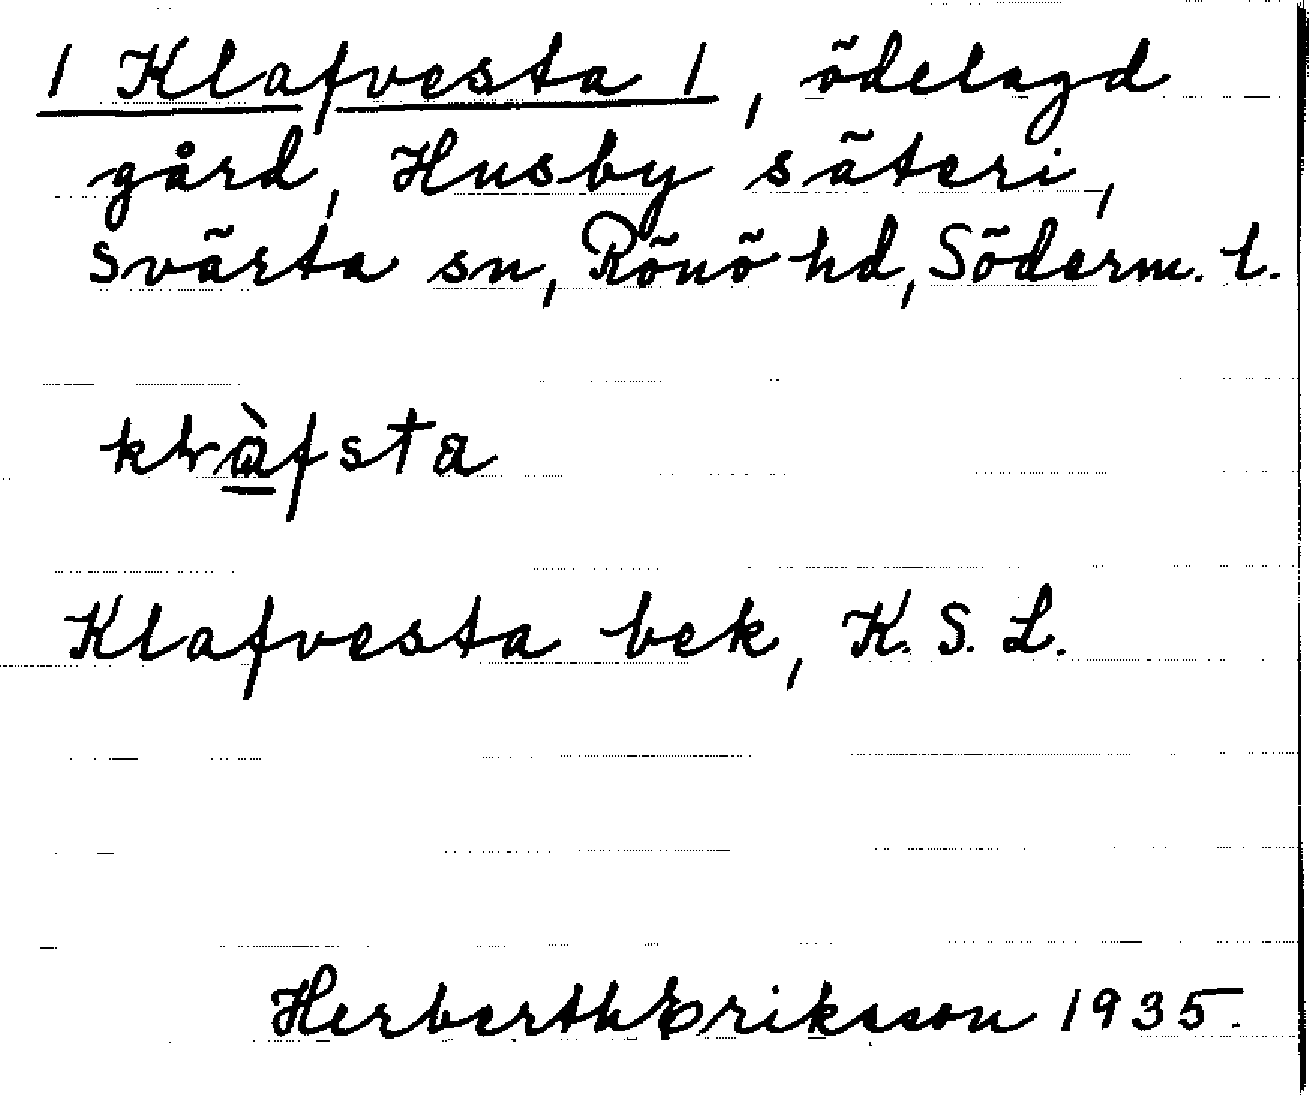 / Klafvesta /, ödelagd
gård, Husby säteri,
Svärta sn, Rönö hd, Söderm. l.
klàfsta
Klafvesta bek, K. S. L.
Herberth Eriksson 1935.